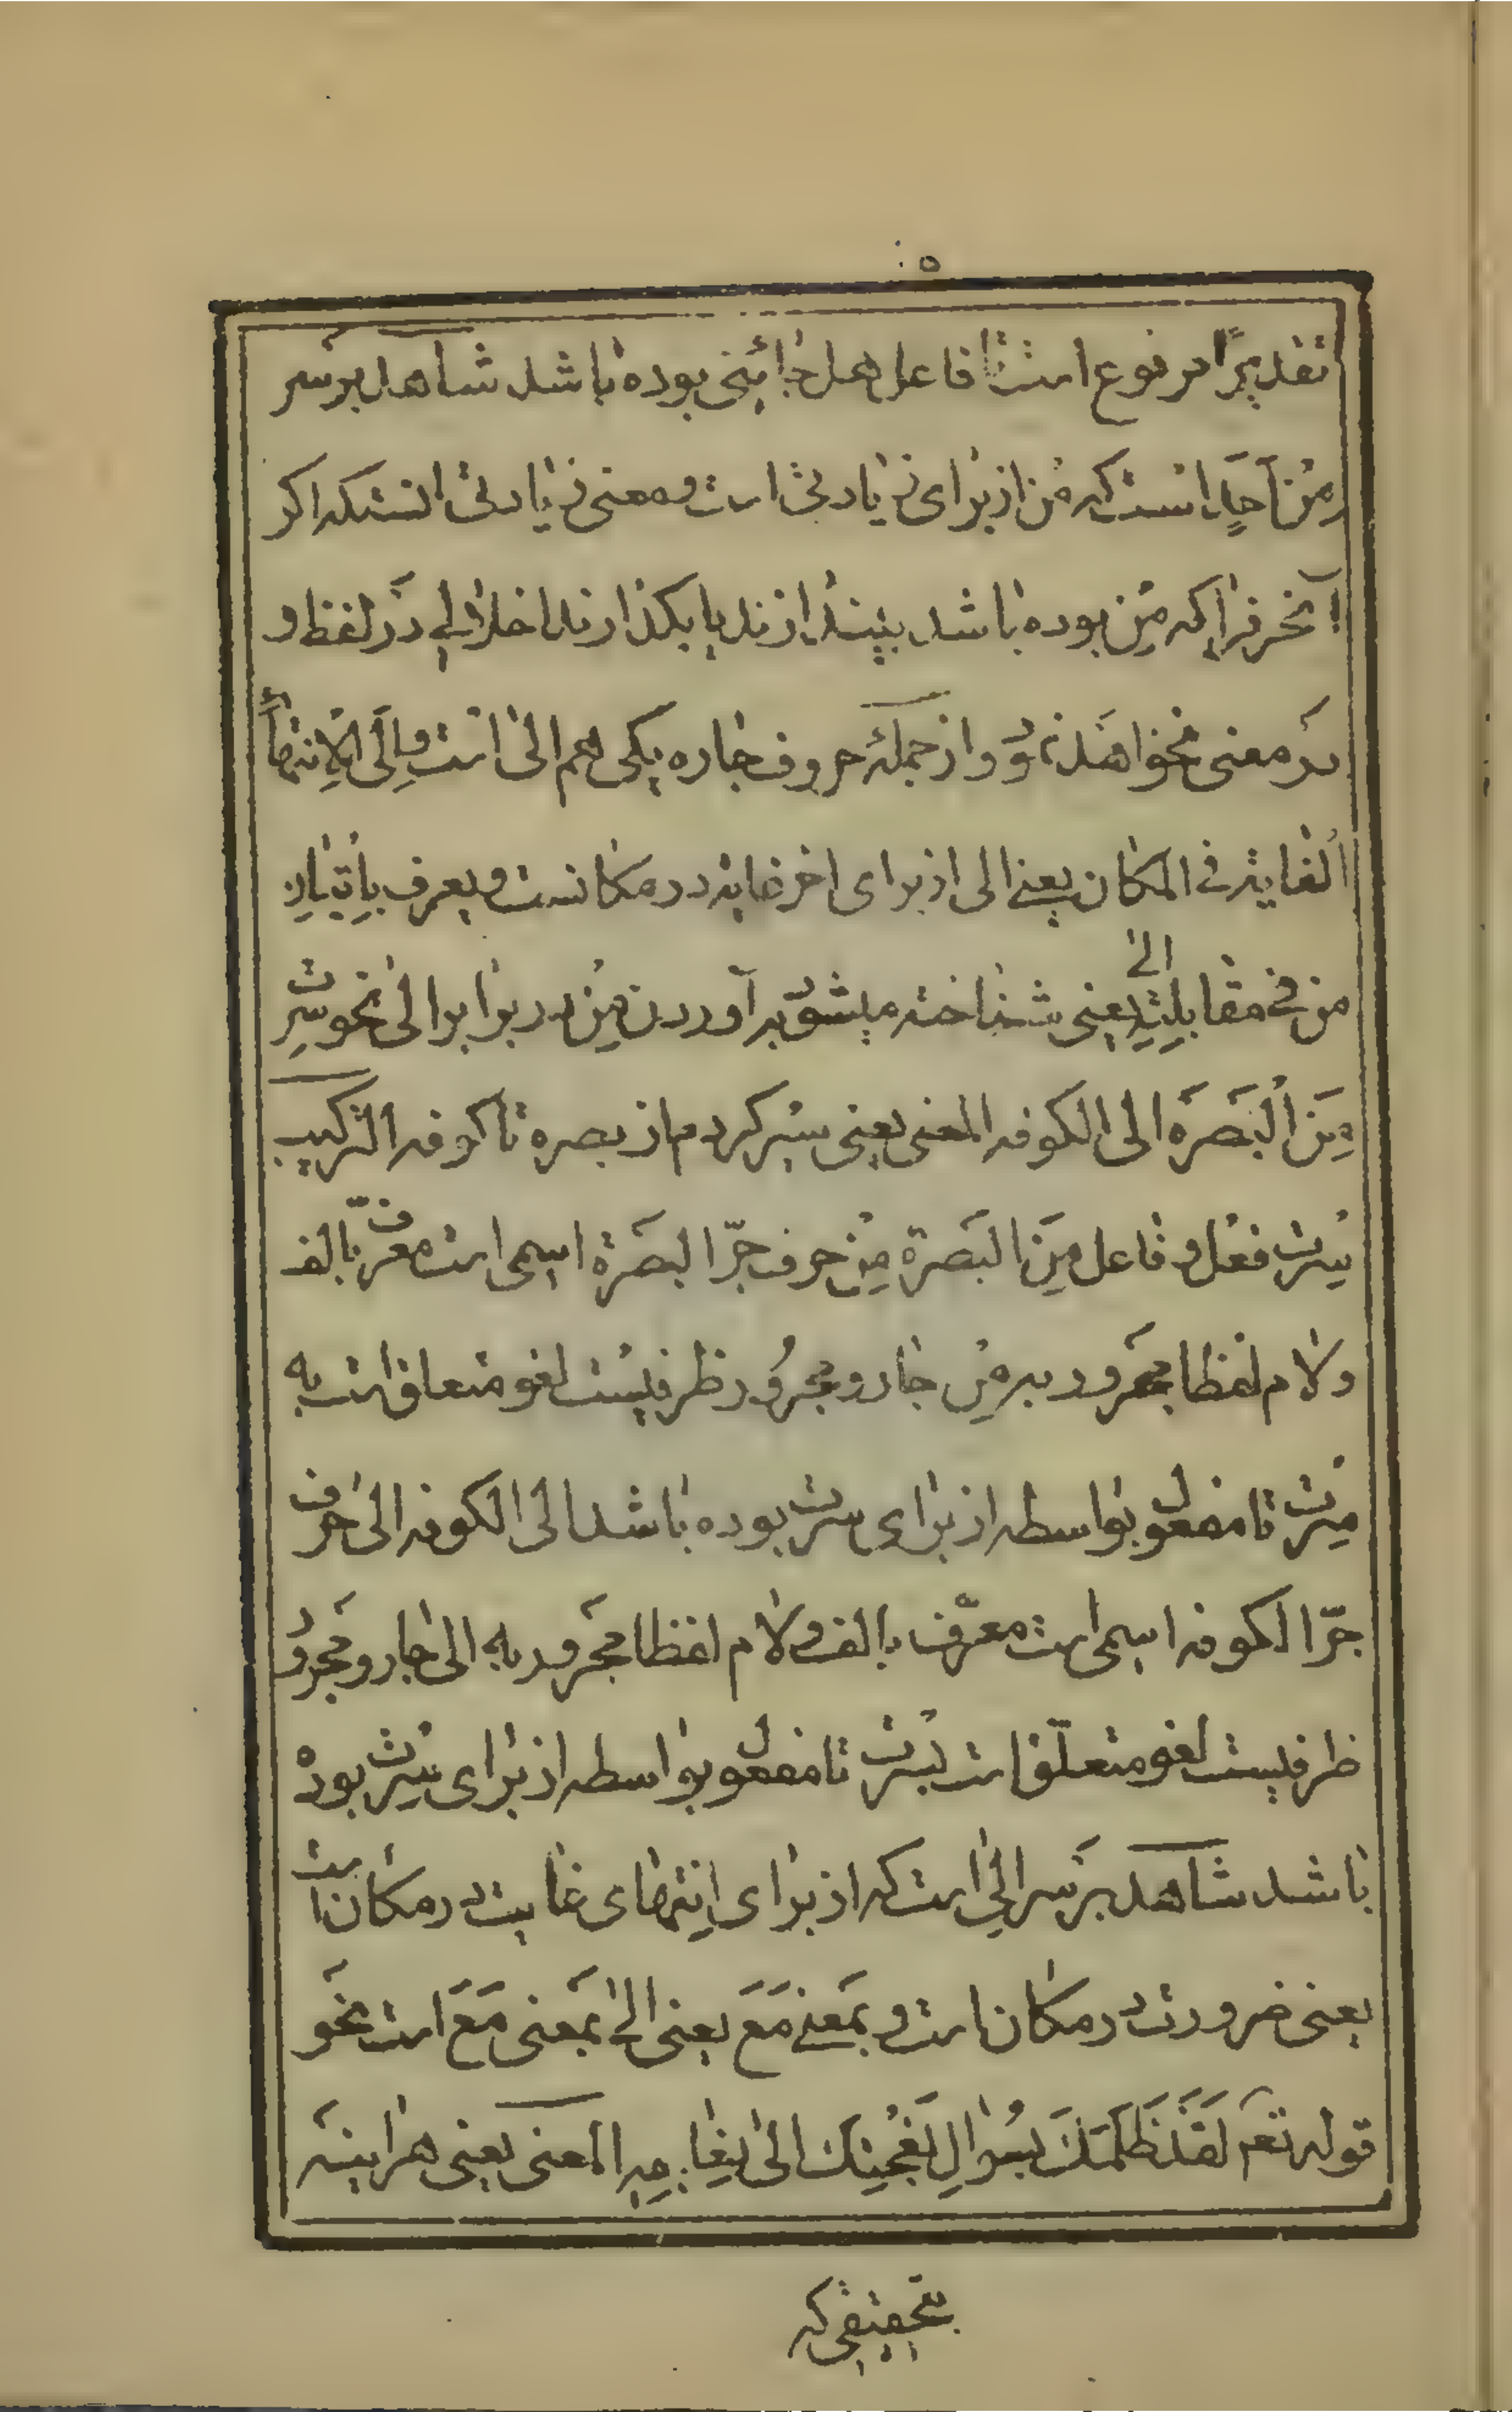 ۵
تقدیرًا مرفوع است تا فاعل هل جائنی بوده باشد شاهد بر سر
مِنْ اَحَدٍ است که مِنْ از برای زیادتی است و معنی زیادتی انستکه اکر
آنحرفرا که مِن بوده باشد بیندازند یا بکذارند اخلالی دَر لفظ و
دَر معنی نخواهَد نمود و از جملۀ حروف جاره یکی هم الی است و اِلی لِاِنتهاءِ
الغایته فی المکان یعنی الی از برای اخر غایة در مکانست و یعرف بِاِتیانِ
من فی مقابلتِهِ یعنی شناخته میشود بر آوردن مِنْ در برابر الی نحو سِرت
الی
مِنَ اْلبَصرَة الی الکوفه المعنی یعنی سیر کردم از بصره تا کوفه الترکیب
سِرت فعل و فاعل مِنَ البَصرة مِن حرف جرّ البصَرة اسمی است معرّف بالف
و لام لفظا مَجرور به مِن جار و مجرور ظرفیست لغو متعلق است به
سِرت تا مفعول بواسطه از برای سرت بوده باشد الی الکوفه الی حرف
جرّ الکوفه اسمی است معرّف بالف و لام لفظا مَجرور به الی جار و مَجرور
ظرفیست لغو متعلّق است بسِرت تا مفعول بواسطه از برای سِرت بوده
باشد شاهد بَر سر اِلی است که از برای اِنتِهای غایت در مکان است
یعنی ضرورت در مکان است و بمَعنی مَعَ یعنی الی بمَعنی مَعَ است نَحو
قوله تعَم لَقَدْ ظَلَمَكَ بسُؤالِ نَعْجَتِكَ الی نِعاجِهِ المعنی یعنی هَراینَه
بتحقیقی که